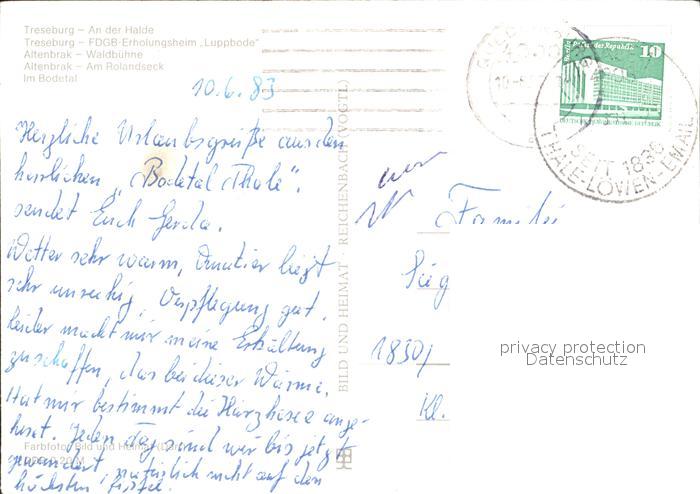 Treseburg – An der Halde
Treseburg – FDGB-Erholungsheim „Luppbode"
Altenbrak – Waldbühne
Altenbrak – Am Rolandseck
Im Bodetal
10
SEIT 1836
THALE-LÖWEN-EMAIL
10.6.83
Herzliche Urlaubsgrüße aus dem
herrlichen „Bodetal Thale".
sendet Euch Gerda.
Wetter sehr warm, Quatier liegt
sehr unruhig, Verpflegung gut,
leider macht mir meine Erkältung
zu schaffen, das bei dieser Wärme.
Hat mir bestimmt die Harzhexe ange-
hext. Jeden Tag sind wir bis jetzt
gewandert, natürlich nicht auf den
höchsten
BILD UND HEIMAT · REICHENBACH (VOGTL)
Familie
Sieg
1830
Kl.
privacy protection
Datenschutz
Farbfoto: Bild und Heimat